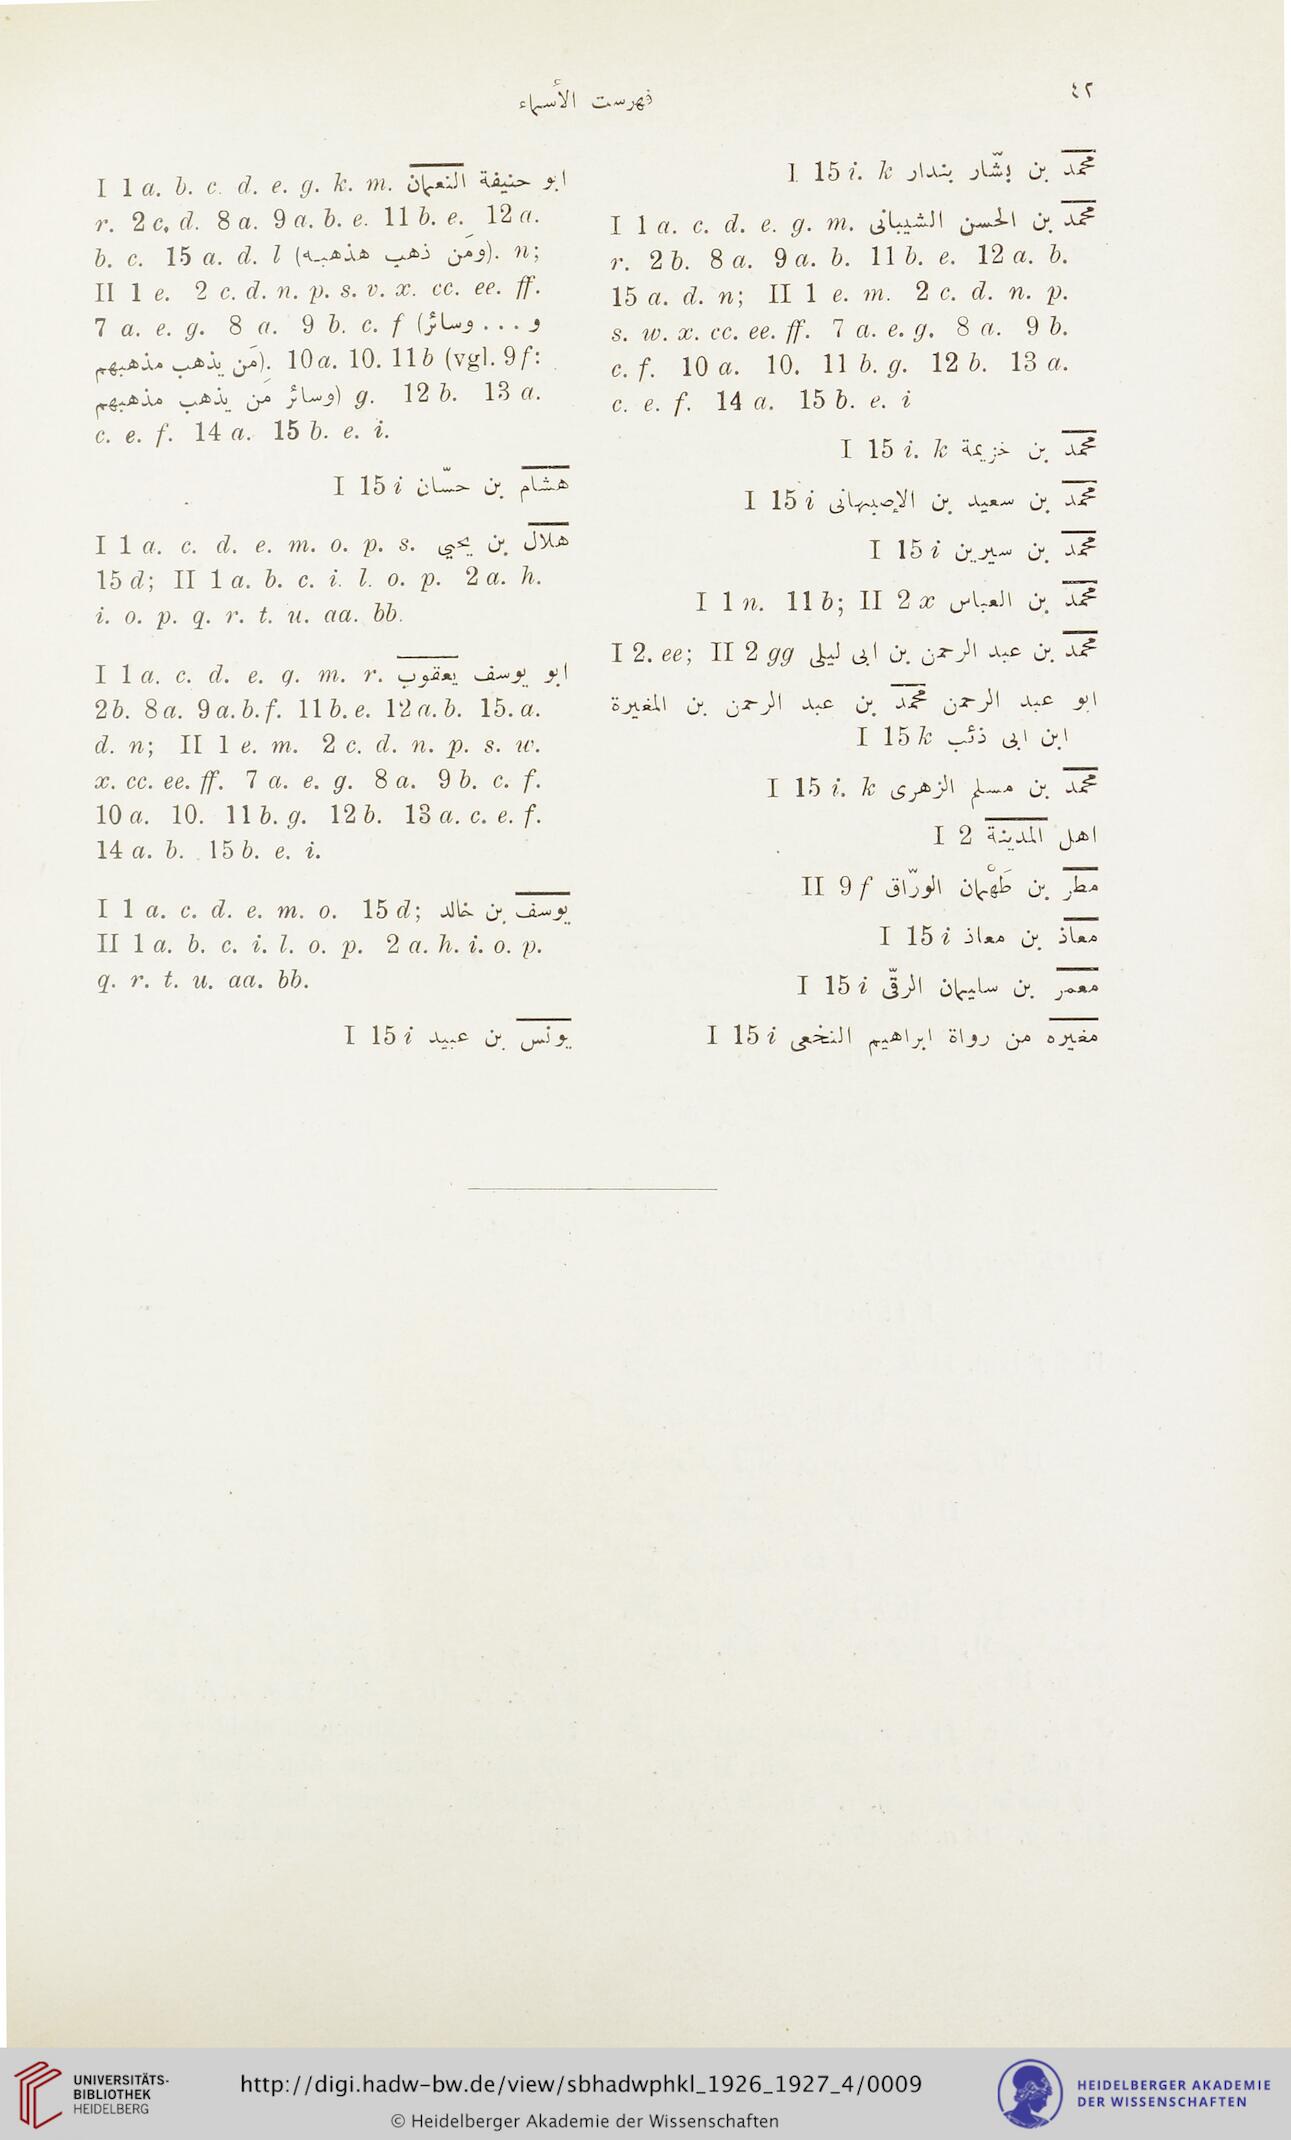 ٤٢
فهرست الأسماء
محمّد بن بشّار بندار I 15 i. k
محمّد بن الحسن الشيبانى I 1 a. c. d. e. g. m.
r. 2 b. 8 a. 9 a. b. 11 b. e. 12 a. b.
15 a. d. n; II 1 e. m. 2 c. d. n. p.
s. w. x. cc. ee. ff. 7 a. e. g. 8 a. 9 b.
c. f. 10 a. 10. 11 b. g. 12 b. 13 a.
c. e. f. 14 a. 15 b. e. i
محمّد بن خزيمة I 15 i. k
محمّد بن سعيد بن الإصبهانى I 15 i
محمّد بن سيرين I 15 i
محمّد بن العباس I 1 n. 11 b; II 2 x
محمّد بن عبد الرحمن بن ابى ليلى I 2. ee; II 2 gg
ابو عبد الرحمن محمّد بن عبد الرحمن بن المغيرة
ابن ابى ذئب I 15 k
محمّد بن مسلم الزهرى I 15 i. k
اهل المدينة I 2
مطر بن طَهْمان الورّاق II 9 f
معاذ بن معاذ I 15 i
معمر بن سليمان الرقّى I 15 i
مغيره من رواة ابراهيم النخعى I 15 i
ابو حنيفة النعمان I 1 a. b. c. d. e. g. k. m.
r. 2 c, d. 8 a. 9 a. b. e. 11 b. e. 12 a.
b. c. 15 a. d. l (ومَن ذهب هذهبه). n;
II 1 e. 2 c. d. n. p. s. v. x. cc. ee. ff.
7 a. e. g. 8 a. 9 b. c. f (و . . . وسائر
مَن يذهب مذهبهم). 10 a. 10. 11 b (vgl. 9 f:
وسائر مَن يذهب مذهبهم) g. 12 b. 13 a.
c. e. f. 14 a. 15 b. e. i.
هشام بن حسّان I 15 i
هلال بن يحيي I 1 a. c. d. e. m. o. p. s.
15 d; II 1 a. b. c. i. l. o. p. 2 a. h.
i. o. p. q. r. t. u. aa. bb.
ابو يوسف يعقوب I 1 a. c. d. e. g. m. r.
2 b. 8 a. 9 a. b. f. 11 b. e. 12 a. b. 15. a.
d. n; II 1 e. m. 2 c. d. n. p. s. w.
x. cc. ee. ff. 7 a. e. g. 8 a. 9 b. c. f.
10 a. 10. 11 b. g. 12 b. 13 a. c. e. f.
14 a. b. 15 b. e. i.
يوسف بن خالد I 1 a. c. d. e. m. o. 15 d;
II 1 a. b. c. i. l. o. p. 2 a. h. i. o. p.
q. r. t. u. aa. bb.
يونس بن عبيد I 15 i
UNIVERSITÄTS-
BIBLIOTHEK
HEIDELBERG
http://digi.hadw-bw.de/view/sbhadwphkl_1926_1927_4/0009
© Heidelberger Akademie der Wissenschaften
HEIDELBERGER AKADEMIE
DER WISSENSCHAFTEN